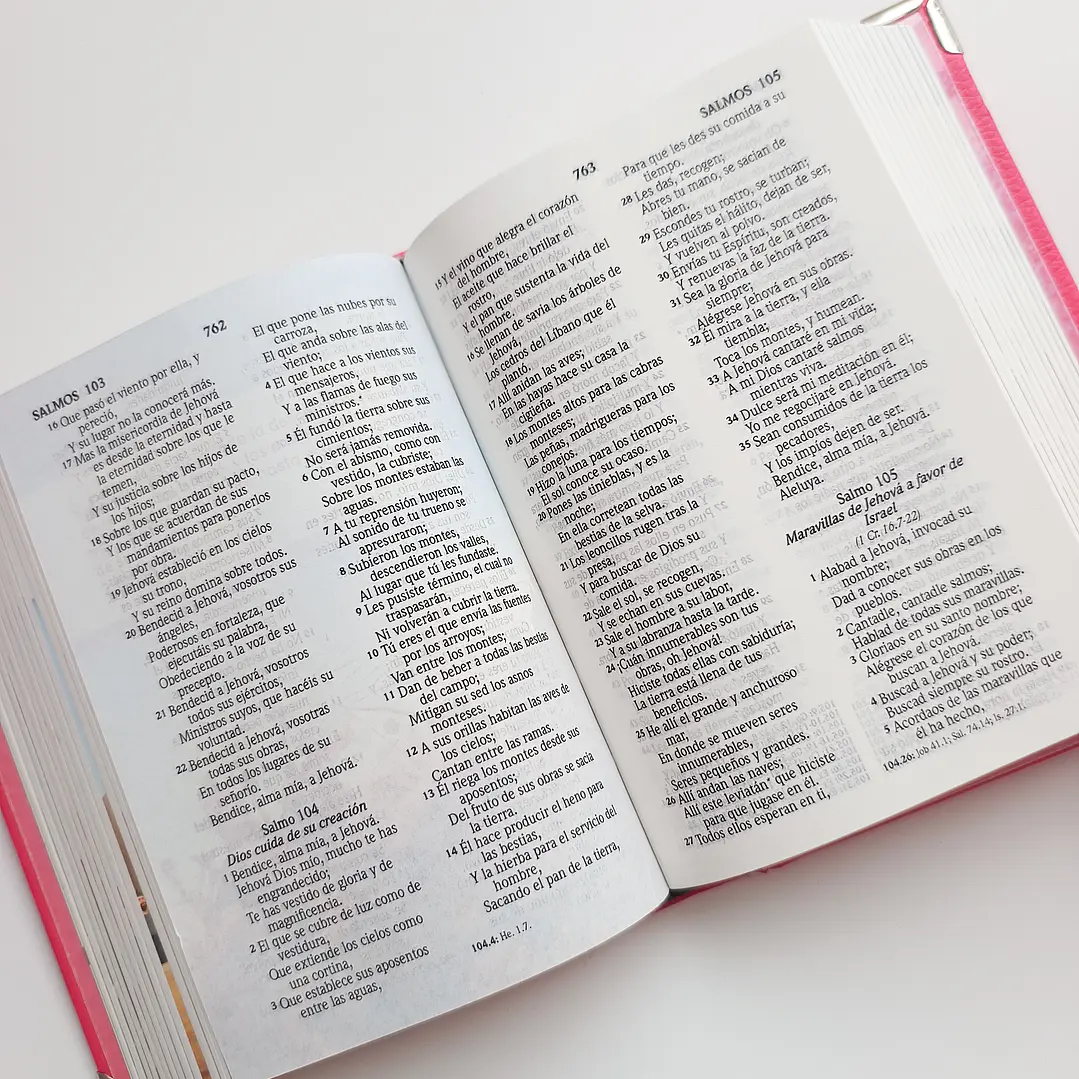 SALMOS 103
762
16 Que pasó el viento por ella, y
pereció,
Y su lugar no la conocerá más.
17 Mas la misericordia de Jehová
es desde la eternidad y hasta
la eternidad sobre los que le
temen,
Y su justicia sobre los hijos de
los hijos;
18 Sobre los que guardan su pacto,
Y los que se acuerdan de sus
mandamientos para ponerlos
por obra.
19 Jehová estableció en los cielos
su trono,
Y su reino domina sobre todos.
20 Bendecid a Jehová, vosotros sus
ángeles,
Poderosos en fortaleza, que
ejecutáis su palabra,
Obedeciendo a la voz de su
precepto.
21 Bendecid a Jehová, vosotros
todos sus ejércitos,
Ministros suyos, que hacéis su
voluntad.
22 Bendecid a Jehová, vosotras
todas sus obras,
En todos los lugares de su
señorío.
Bendice, alma mía, a Jehová.
Salmo 104
Dios cuida de su creación
1 Bendice, alma mía, a Jehová.
Jehová Dios mío, mucho te has
engrandecido;
Te has vestido de gloria y de
magnificencia.
2 El que se cubre de luz como de
vestidura,
Que extiende los cielos como
una cortina,
3 Que establece sus aposentos
entre las aguas,
El que pone las nubes por su
carroza,
El que anda sobre las alas del
viento;
4 El que hace a los vientos sus
mensajeros,
Y a las flamas de fuego sus
ministros.*
5 Él fundó la tierra sobre sus
cimientos;
No será jamás removida.
6 Con el abismo, como con
vestido, la cubriste;
Sobre los montes estaban las
aguas.
7 A tu reprensión huyeron;
Al sonido de tu trueno se
apresuraron;
8 Subieron los montes,
descendieron los valles,
Al lugar que tú les fundaste.
9 Les pusiste término, el cual no
traspasarán,
Ni volverán a cubrir la tierra.
10 Tú eres el que envía las fuentes
por los arroyos;
Van entre los montes;
11 Dan de beber a todas las bestias
del campo;
Mitigan su sed los asnos
monteses.
12 A sus orillas habitan las aves de
los cielos;
Cantan entre las ramas.
13 Él riega los montes desde sus
aposentos;
Del fruto de sus obras se sacia
la tierra.
14 Él hace producir el heno para
las bestias,
Y la hierba para el servicio del
hombre,
Sacando el pan de la tierra,
104.4: He. 1.7.
763
SALMOS 105
15 Y el vino que alegra el corazón
del hombre,
El aceite que hace brillar el
rostro,
Y el pan que sustenta la vida del
hombre.
16 Se llenan de savia los árboles de
Jehová,
Los cedros del Líbano que él
plantó.
17 Allí anidan las aves;
En las hayas hace su casa la
cigüeña.
18 Los montes altos para las cabras
monteses;
Las peñas, madrigueras para los
conejos.
19 Hizo la luna para los tiempos;
El sol conoce su ocaso.
20 Pones las tinieblas, y es la
noche;
En ella corretean todas las
bestias de la selva.
21 Los leoncillos rugen tras la
presa,
Y para buscar de Dios su
comida.
22 Sale el sol, se recogen,
Y se echan en sus cuevas.
23 Sale el hombre a su labor,
Y a su labranza hasta la tarde.
24 ¡Cuán innumerables son tus
obras, oh Jehová!
Hiciste todas ellas con sabiduría;
La tierra está llena de tus
beneficios.
25 He allí el grande y anchuroso
mar,
En donde se mueven seres
innumerables,
Seres pequeños y grandes.
26 Allí andan las naves;
Allí este leviatán* que hiciste
para que jugase en él.
27 Todos ellos esperan en ti,
Para que les des su comida a su
tiempo.
28 Les das, recogen;
Abres tu mano, se sacian de
bien.
29 Escondes tu rostro, se turban;
Les quitas el hálito, dejan de ser,
Y vuelven al polvo.
30 Envías tu Espíritu, son creados,
Y renuevas la faz de la tierra.
31 Sea la gloria de Jehová para
siempre;
Alégrese Jehová en sus obras.
32 Él mira a la tierra, y ella
tiembla;
Toca los montes, y humean.
33 A Jehová cantaré en mi vida;
A mi Dios cantaré salmos
mientras viva.
34 Dulce será mi meditación en él;
Yo me regocijaré en Jehová.
35 Sean consumidos de la tierra los
pecadores,
Y los impíos dejen de ser.
Bendice, alma mía, a Jehová.
Aleluya.
Salmo 105
Maravillas de Jehová a favor de
Israel
(1 Cr. 16.7-22)
1 Alabad a Jehová, invocad su
nombre;
Dad a conocer sus obras en los
pueblos.
2 Cantadle, cantadle salmos;
Hablad de todas sus maravillas.
3 Gloriaos en su santo nombre;
Alégrese el corazón de los que
buscan a Jehová.
4 Buscad a Jehová y su poder;
Buscad siempre su rostro.
5 Acordaos de las maravillas que
él ha hecho,
104.26: Job 41.1; Sal. 74.14; Is. 27.1.